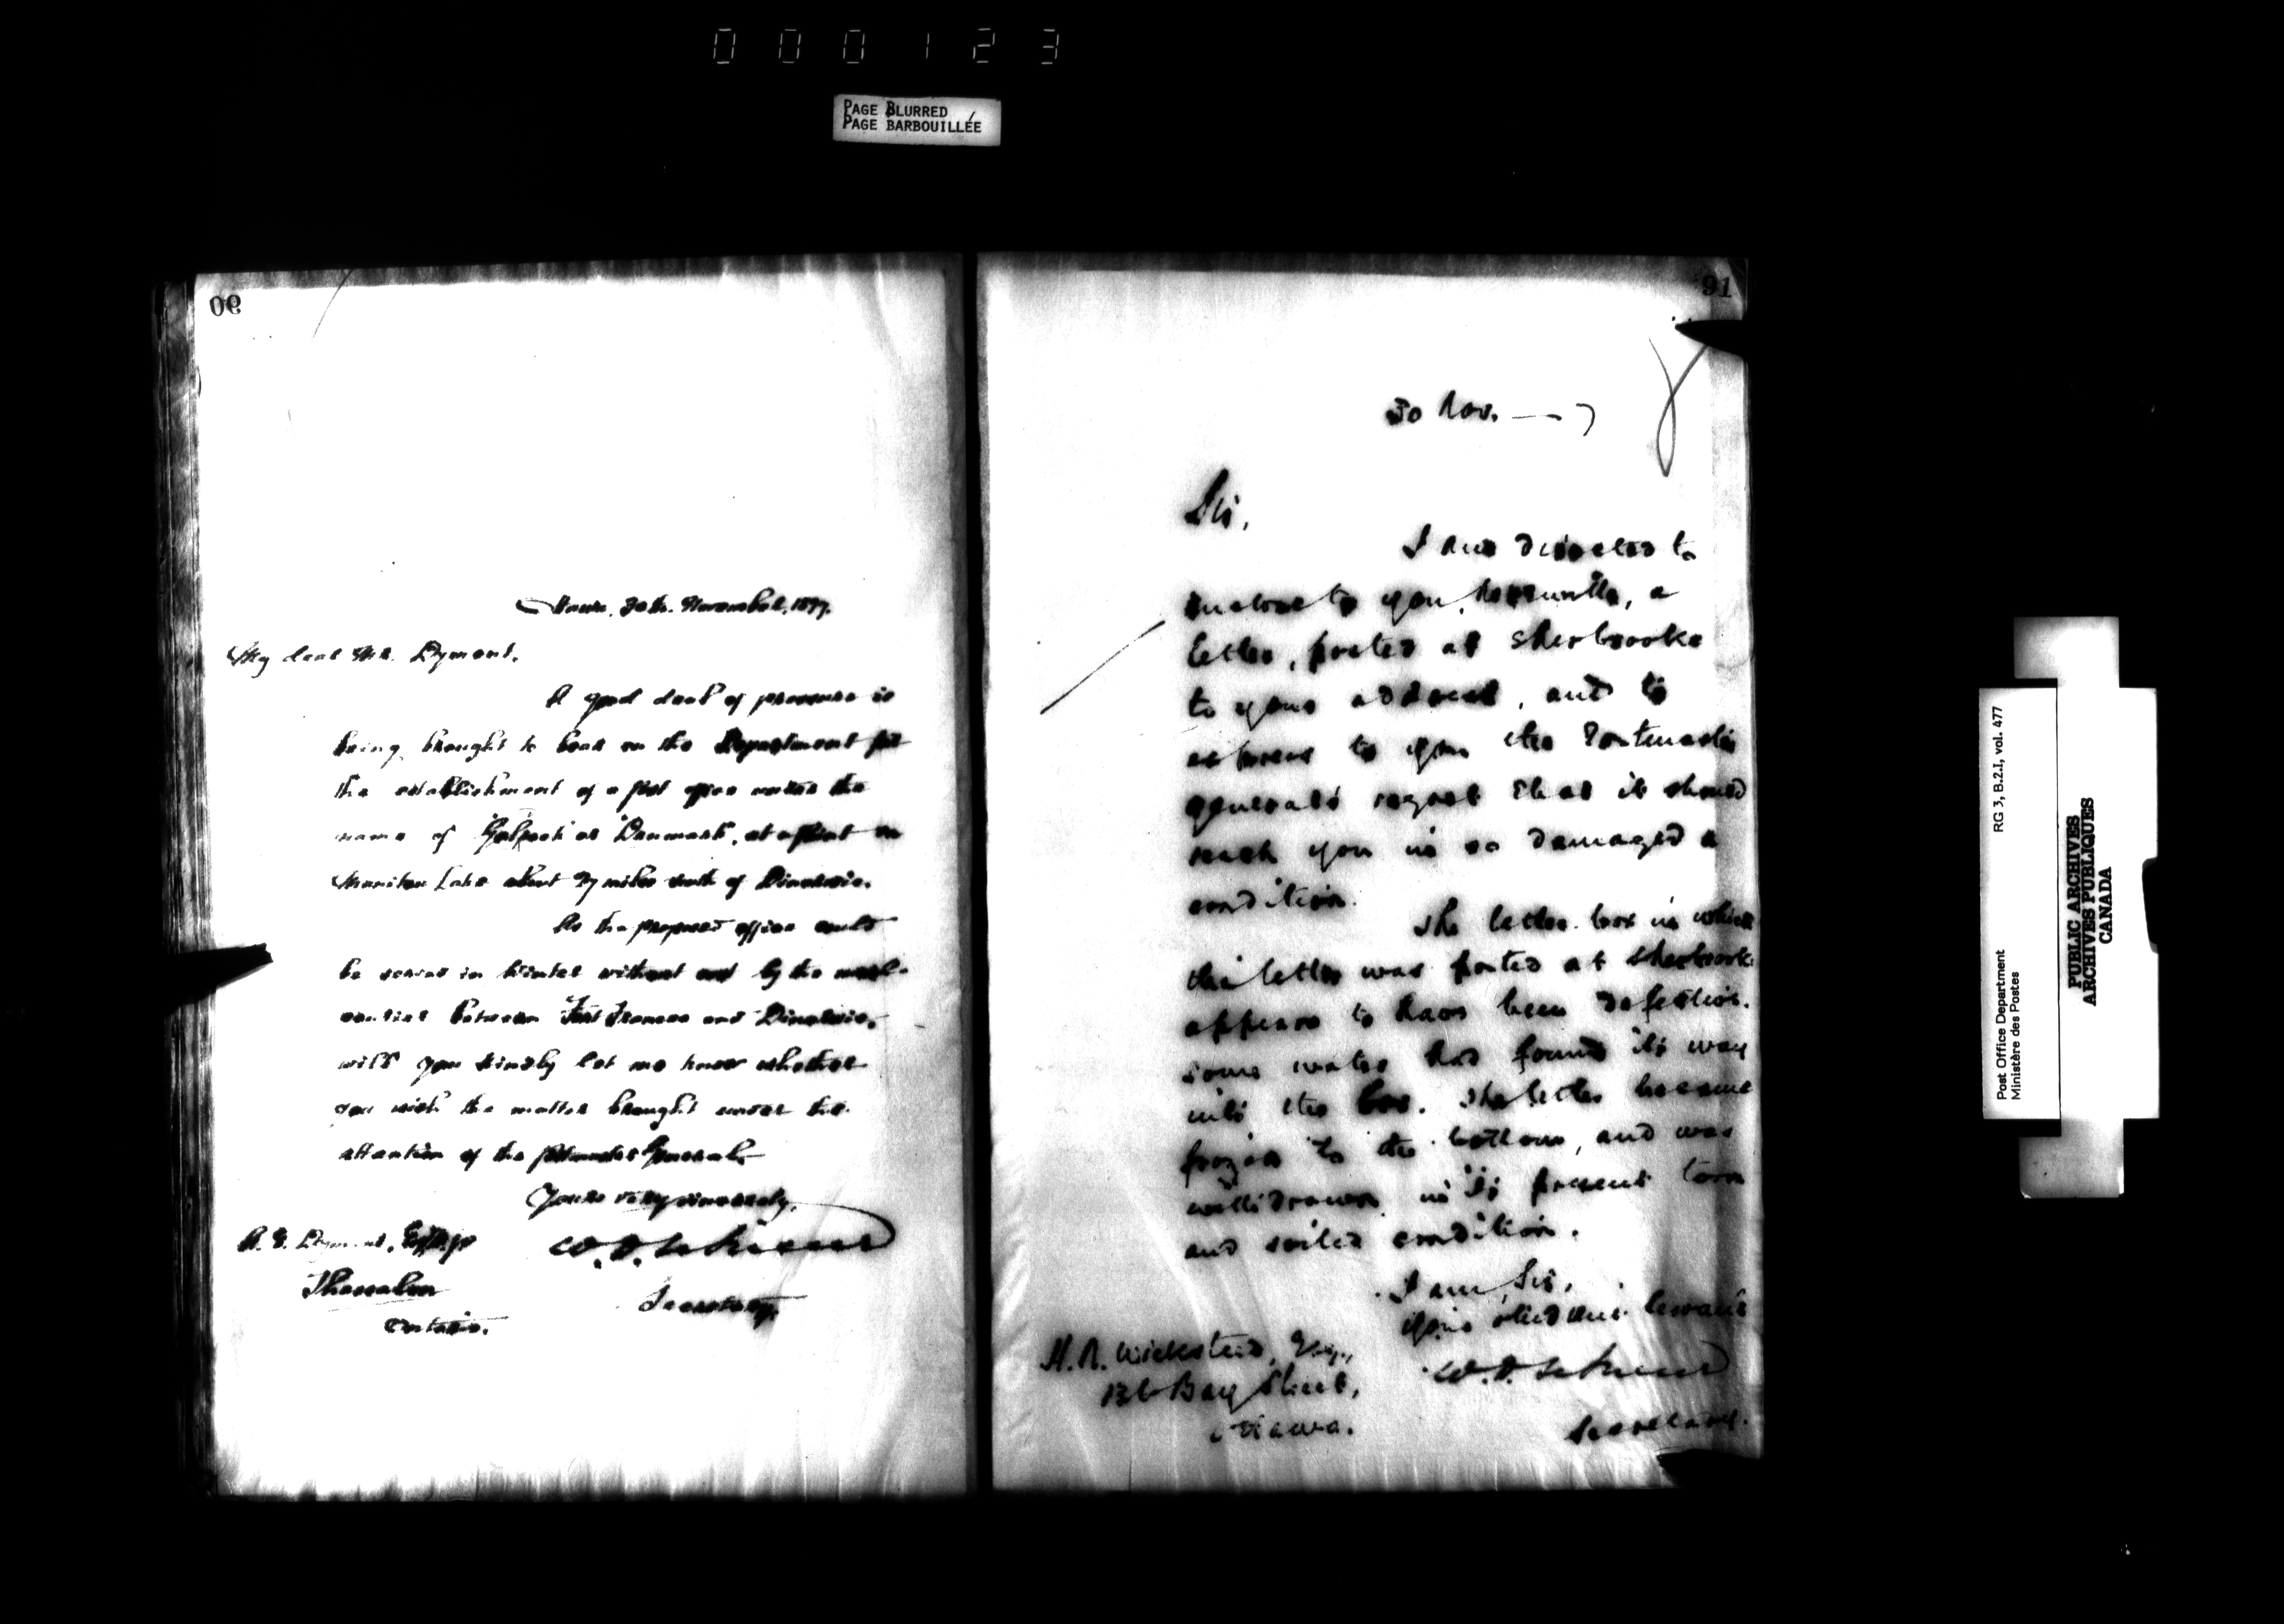 000123
PAGE BLURRED
PAGE BARBOUILLÉE
90
30th. November, 1897.
My dear Mr. Dyment,
A good deal of pressure is
being brought to bear on the Department for
the establishment of a post office under the
name of or "Denmark", at a point on
Manitou Lake about 27 miles south of Dinorwic.
As the proposed office could
be served in Winter without cost by the mail-
carrier between Fort Frances and Dinorwic,
will you kindly let me know whether
you wish the matter brought under the
attention of the Postmaster General.
Yours very sincerely,
A. E. Dyment, Esq., M.P.
Thessalon
Ontario.
Secretary.
91
30 Nov. — 7
Sir,
I am directed to
enclose to you, herewith, a
letter, posted at Sherbrooke
to your address, and to
express to you the Postmaster
General's regret that it should
reach you in so damaged a
condition.
The letter box in which
this letter was posted at Sherbrooke
appears to have been defective.
Some water had found its way
into the box. The letter became
frozen to the bottom, and was
withdrawn in its present torn
and soiled condition.
I am, Sir,
Your obedient Servant
H. R. Wicksteed, Esq.,
136 Bay Street,
Ottawa.
Secretary.
Post Office Department
Ministère des Postes
RG 3, B.2.I, vol. 477
PUBLIC ARCHIVES
ARCHIVES PUBLIQUES
CANADA